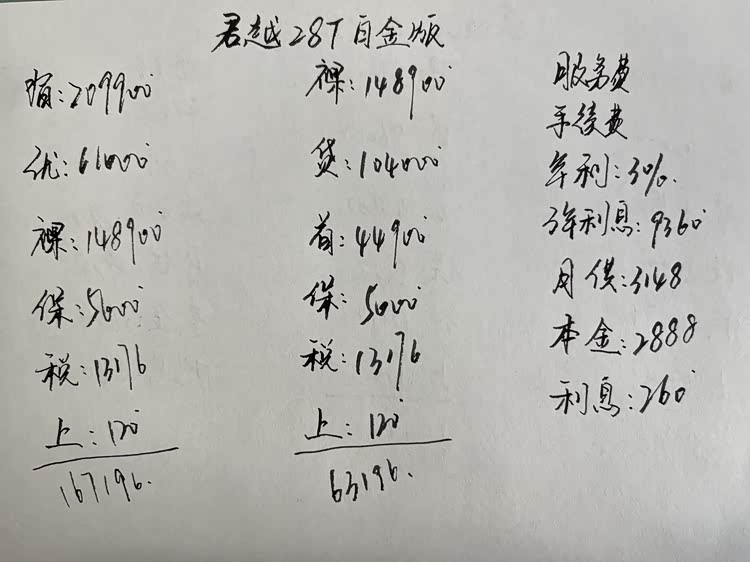 君越28T白金版
指:209900
优:61000
裸:148900
保:5000
税:13176
上:120
167196.
裸:148900
贷:104000
首:44900
保:5000
税:13176
上:120
63196.
服务费
手续费
年利:3%.
3年利息:9360
月供:3148
本金:2888
利息:260